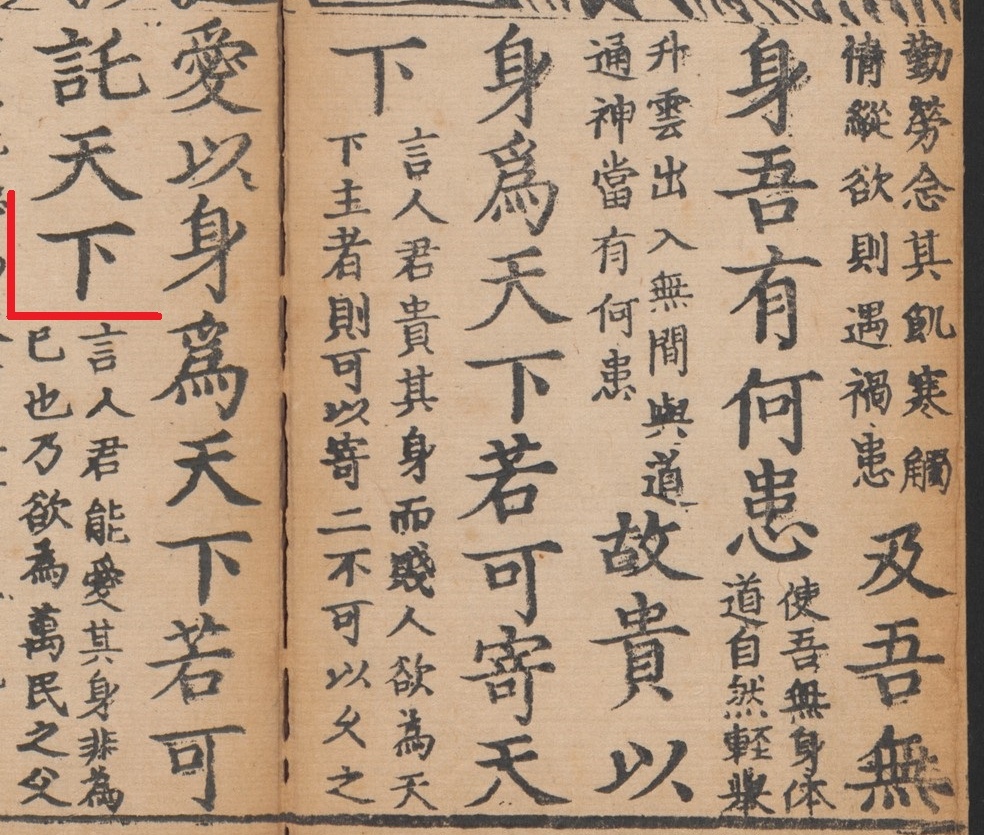 勤勞念其飢寒觸
情縱欲則遇禍患
及吾無
身吾有何患
使吾無身体
道自然軽舉
升雲出入無間與道
通神當有何患
故貴以
身爲天下若可寄天
下
言人君貴其身而賤人欲為天
下主者則可以寄二不可以乆之
愛以身爲天下若可
託天下
言人君能愛其身非為
巳也乃欲為萬民之父